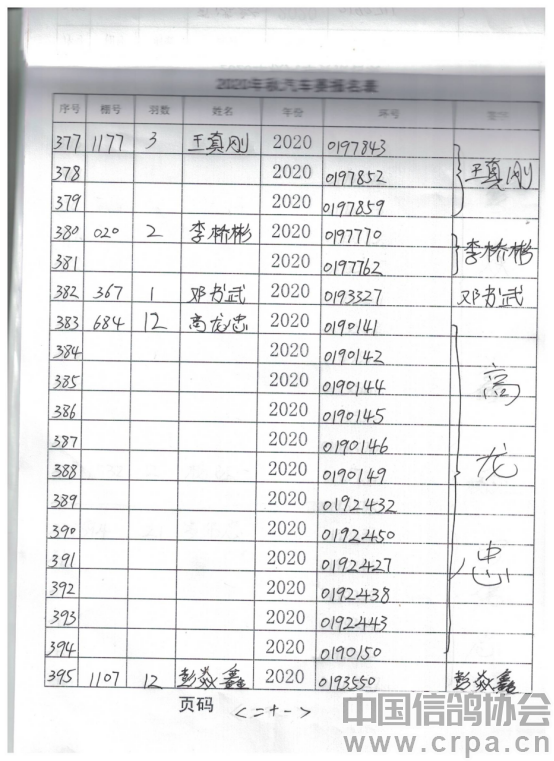 2020年秋汽车赛报名表
序号 棚号 羽数 姓名 年份 环号 签字
377 1177 3 王真刚 2020 0197843
378 2020 0197852 王真刚
379 2020 0197859
380 020 2 李桥彬 2020 0197770
381 2020 0197762 李桥彬
382 367 1 邓书武 2020 0193327 邓书武
383 684 12 高龙忠 2020 0190141
384 2020 0190142
385 2020 0190144 高
386 2020 0190145
387 2020 0190146
388 2020 0190149 龙
389 2020 0192432
390 2020 0192450
391 2020 0192427 忠
392 2020 0192438
393 2020 0192443
394 2020 0190150
395 1107 12 彭焱鑫 2020 0193550 彭焱鑫
页码 <二十一>
中国信鸽协会
www.crpa.cn